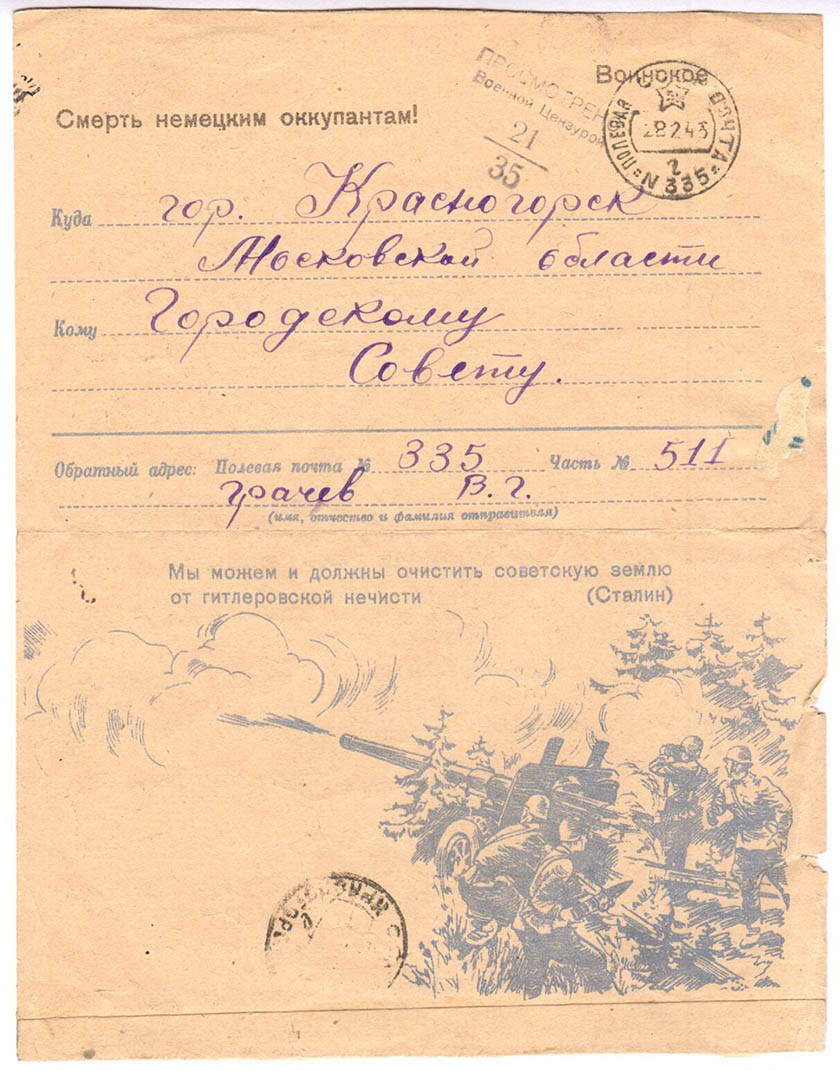 Воинское
ПРОСМОТРЕНО
Военной Цензурой
21
35
ПОЛЕВАЯ ПОЧТА
28 2 43
2
N 335
Смерть немецким оккупантам!
Куда гор. Красногорск
Московской области
Кому Городскому
Совету.
Обратный адрес: Полевая почта № 335 Часть № 511
Грачев В. Г.
(имя, отчество и фамилия отправителя)
Мы можем и должны очистить советскую землю
от гитлеровской нечисти (Сталин)